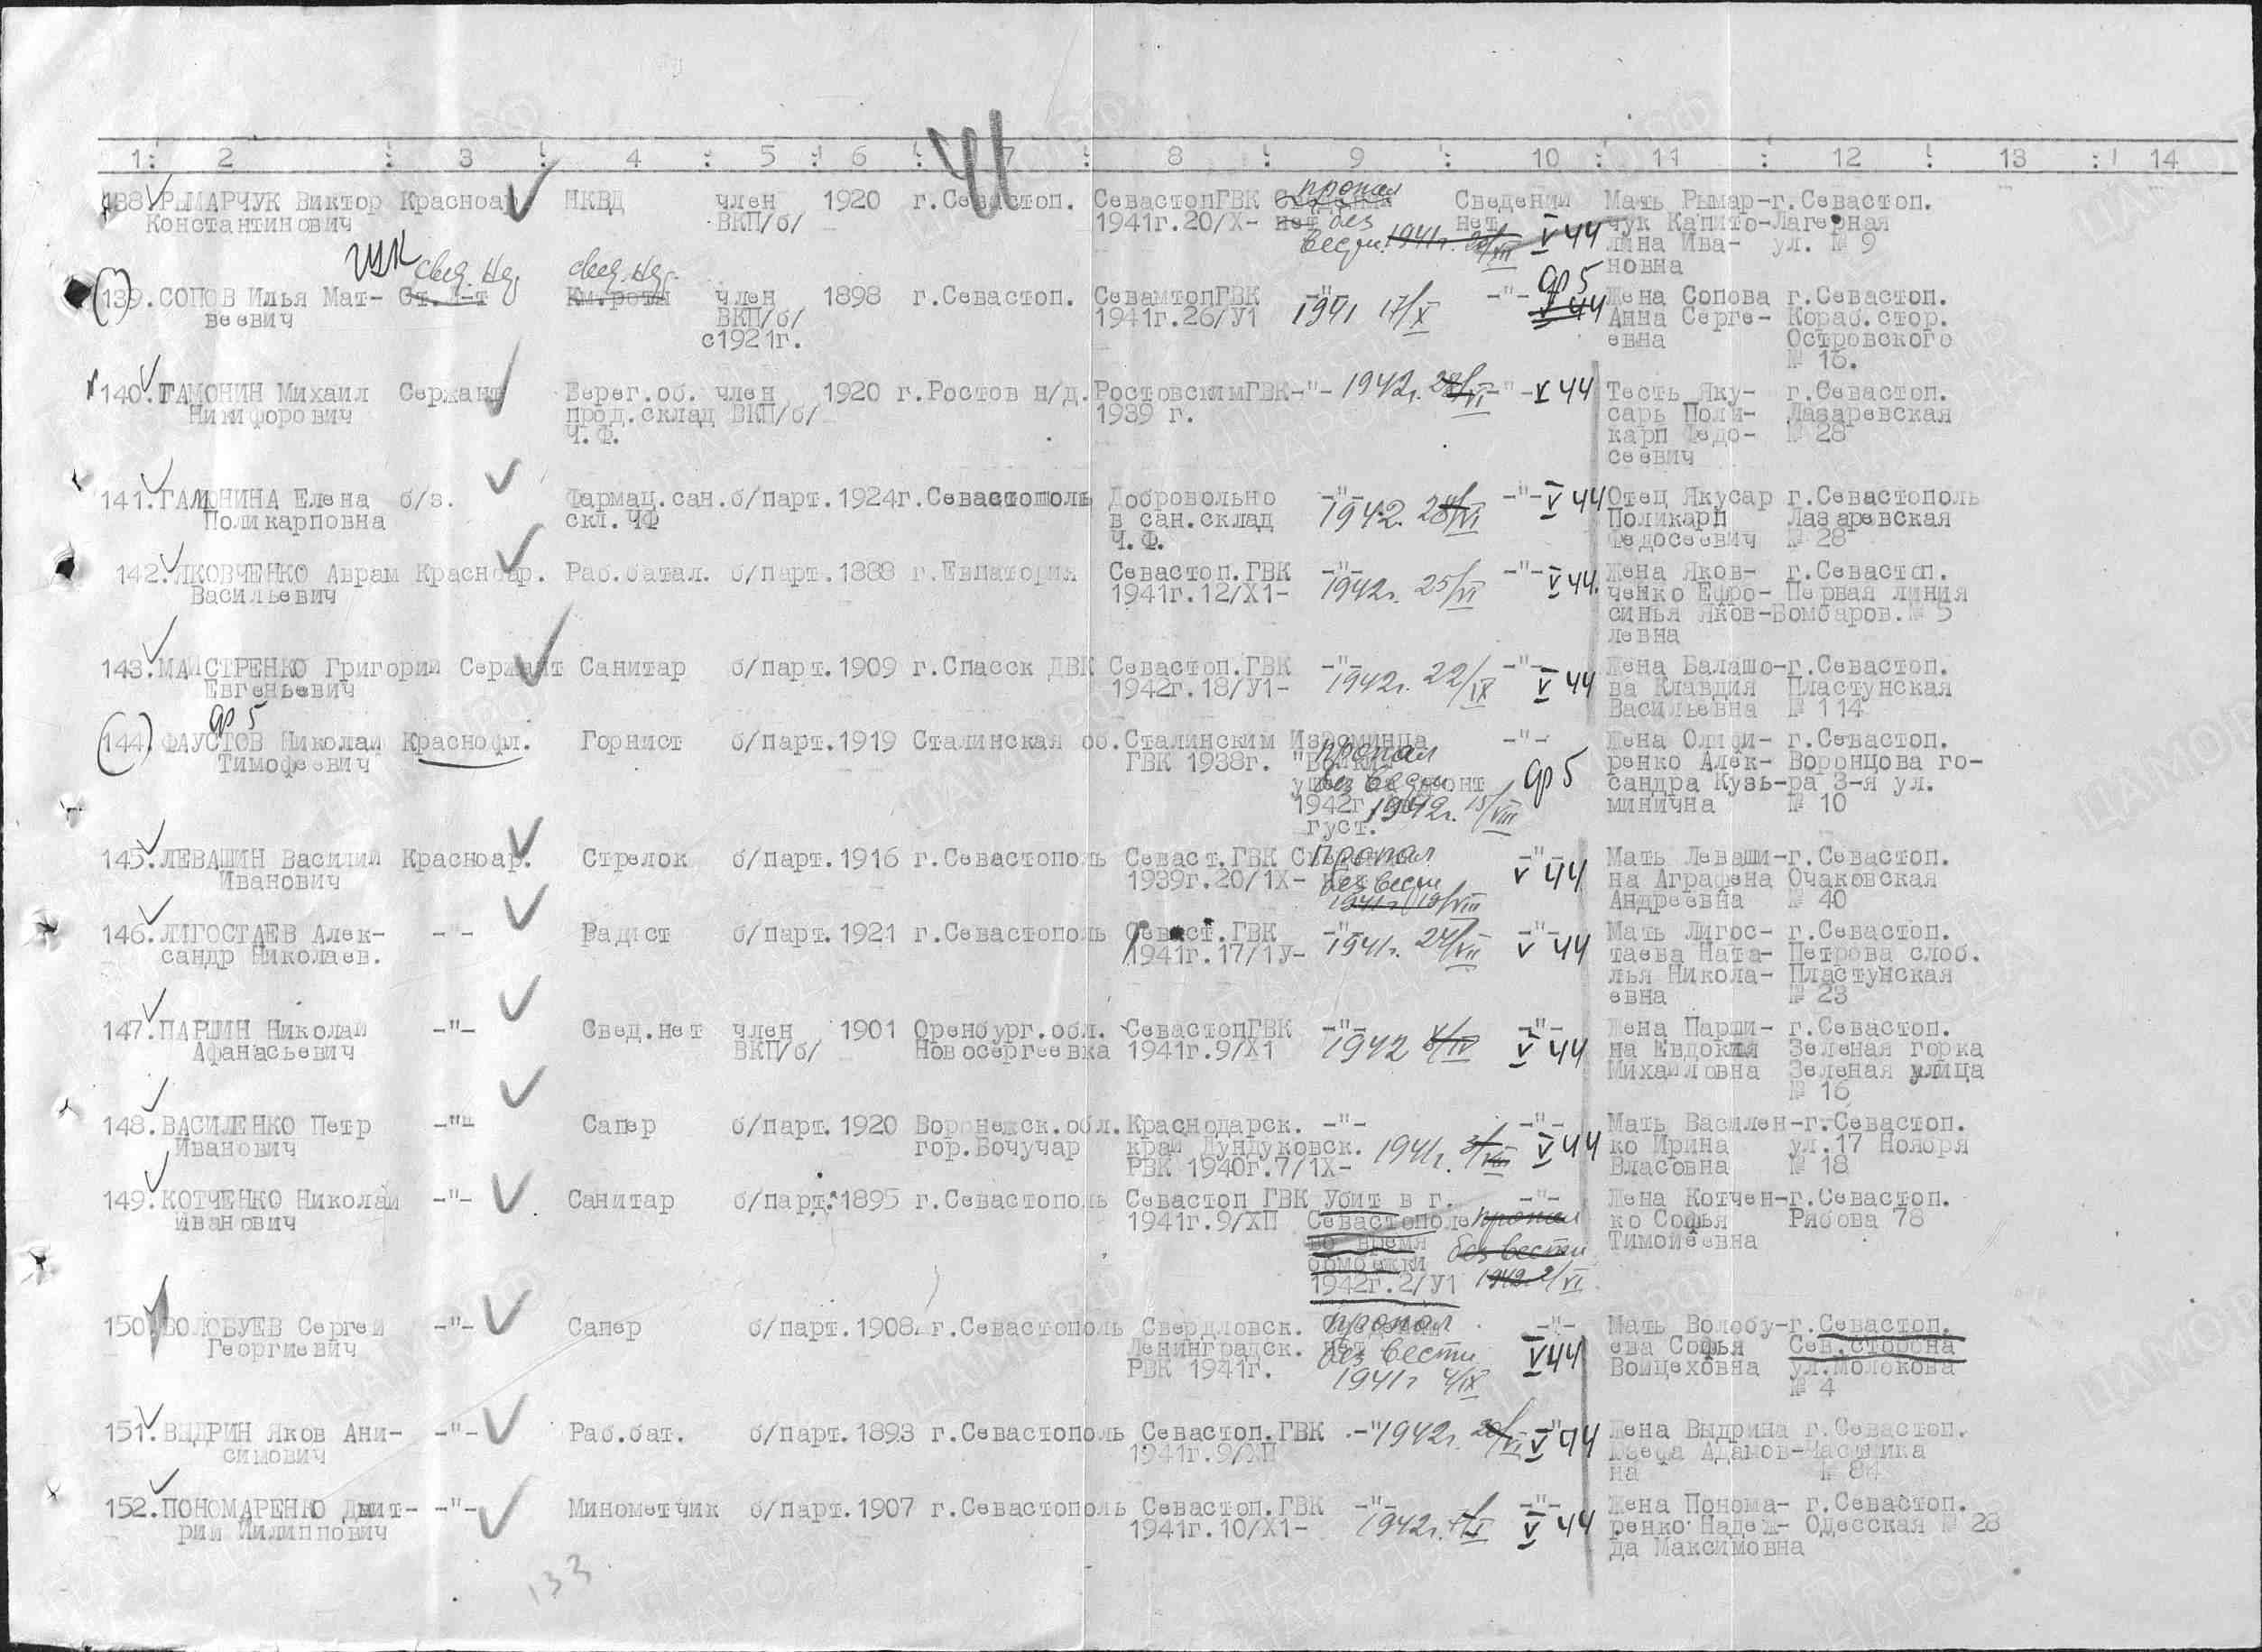 41
1: 2 : 3 : 4 : 5 : 6 : 7 : 8 : 9 : 10 : 11 : 12 : 13 : 14
138. РЫМАРЧУК Виктор Красноар. НКВД член 1920 г.Севастоп. СевастопГВК пропал Сведений Мать Рымар- г.Севастоп.
Константинович ВКП/б/ 1941г.20/Х- нет без нет V 44 чук Капито- Лагерная
вести 1941г. лина Ива- ул. № 9
новна
ГУК свед. нет свед. нет др 5
(139). СОПОВ Илья Мат- Ст. л-т Км.роты член 1898 г.Севастоп. СевамтопГВК -"- -"- V 44 Жена Сопова г.Севастоп.
веевич ВКП/б/ 1941г.26/У1 1941 17/X Анна Серге- Кораб.стор.
с1921г. евна Островского
№ 16.
140. ГАМОНИН Михаил Сержант Берег.об. член 1920 г.Ростов н/д. РостовскимГВК -"- 1942г. 28/VI -"- V 44 Тесть Яку- г.Севастоп.
Никифорович прод.склад ВКП/б/ 1939 г. сарь Поли- Лазаревская
Ч.Ф. карп Федо- № 28
сеевич
141. ГАМОНИНА Елена б/з. Фармац.сан. б/парт. 1924 г.Севастополь Добровольно -"- -"- V 44 Отец Якусар г.Севастополь
Поликарповна скл.ЧФ в сан.склад 1942. 28/VI Поликарп Лазаревская
Ч.Ф. Федосеевич № 28
142. ЯКОВЧЕНКО Аврам Красноар. Раб.батал. б/парт. 1888 г.Евпатория Севастоп.ГВК -"- -"- V 44. Жена Яков- г.Севастоп.
Васильевич 1941г.12/Х1- 1942г. 25/VI ченко Ефро- Первая линия
синья Яков- Бомбаров.№ 5
левна
143. МАЙСТРЕНКО Григорий Сержант Санитар б/парт. 1909 г.Спасск ДВК Севастоп.ГВК -"- -"- Жена Балашо- г.Севастоп.
Евгеньевич 1942г.18/У1- 1942г. 22/IX V 44 ва Клавдия Пластунская
Васильевна № 114
др 5
(144). ФАУСТОВ Николай Краснофл. Горнист б/парт. 1919 Сталинская об. Сталинским Из эсминца -"- Жена Олифи- г.Севастоп.
Тимофеевич ГВК 1938г. пропал др 5 ренко Алек- Воронцова го-
без вести фронт сандра Кузь- ра 3-я ул.
1942г 1942г. 15/VIII минична № 10
густ.
145. ЛЕВАШИН Василий Красноар. Стрелок б/парт. 1916 г.Севастополь Севаст.ГВК пропал -"- Мать Леваши- г.Севастоп.
Иванович 1939г.20/1Х- без вести V 44 на Аграфена Очаковская
1941г. Андреевна № 40
146. ЛИГОСТАЕВ Алек- - - Радист б/парт. 1921 г.Севастополь Севаст.ГВК -"- -"- Мать Лигос- г.Севастоп.
сандр Николаев. 1941г.17/1У- 1941г. V 44 таева Ната- Петрова слоб.
лья Никола- Пластунская
евна № 23
147. ПАРШИН Николай -"- Свед.нет член 1901 Оренбург.обл. СевастопГВК -"- -"- Жена Парши- г.Севастоп.
Афанасьевич ВКП/б/ Новосергеевка 1941г.9/Х1 1942 V 44 на Евдокия Зеленая горка
Михайловна Зеленая улица
№ 16
148. ВАСИЛЕНКО Петр -"- Сапер б/парт. 1920 Воронежск.обл. Краснодарск. -"- -"- Мать Василен- г.Севастоп.
Иванович гор.Бочучар край Дундуковск. 1941г. V 44 ко Ирина ул.17 Ноября
РВК 1940г.7/1Х- Власовна № 18
149. КОТЧЕНКО Николай -"- Санитар б/парт. 1895 г.Севастополь Севастоп ГВК убит в г. -"- Жена Котчен- г.Севастоп.
Иванович 1941г.9/ХП Севастополе пропал ко Софья Рябова 78
во время без вести Тимойеевна
бомбежки
1942г.2/У1 1942 2/VI
150. ВОЛОБУЕВ Сергей -"- Сапер б/парт. 1908 г.Севастополь Свердловск. пропал -"- Мать Волобу- г.Севастоп.
Георгиевич Ленинградск. без вести V 44 ева Софья Сев.сторона
РВК 1941г. 1941г 4/IX Войцеховна ул.Молокова
№ 4
151. ВЫДРИН Яков Ани- -"- Раб.бат. б/парт. 1893 г.Севастополь Севастоп.ГВК -"- 1942г. -"- V 44 Жена Выдрина г.Севастоп.
симович 1941г.9/ХП Адамов- Частника
на № 84
152. ПОНОМАРЕНКО Дмит- -"- Минометчик б/парт. 1907 г.Севастополь Севастоп.ГВК -"- -"- Жена Понома- г.Севастоп.
рий Филиппович 1941г.10/Х1- 1942г. V 44 ренко Надеж- Одесская № 28
да Максимовна
133